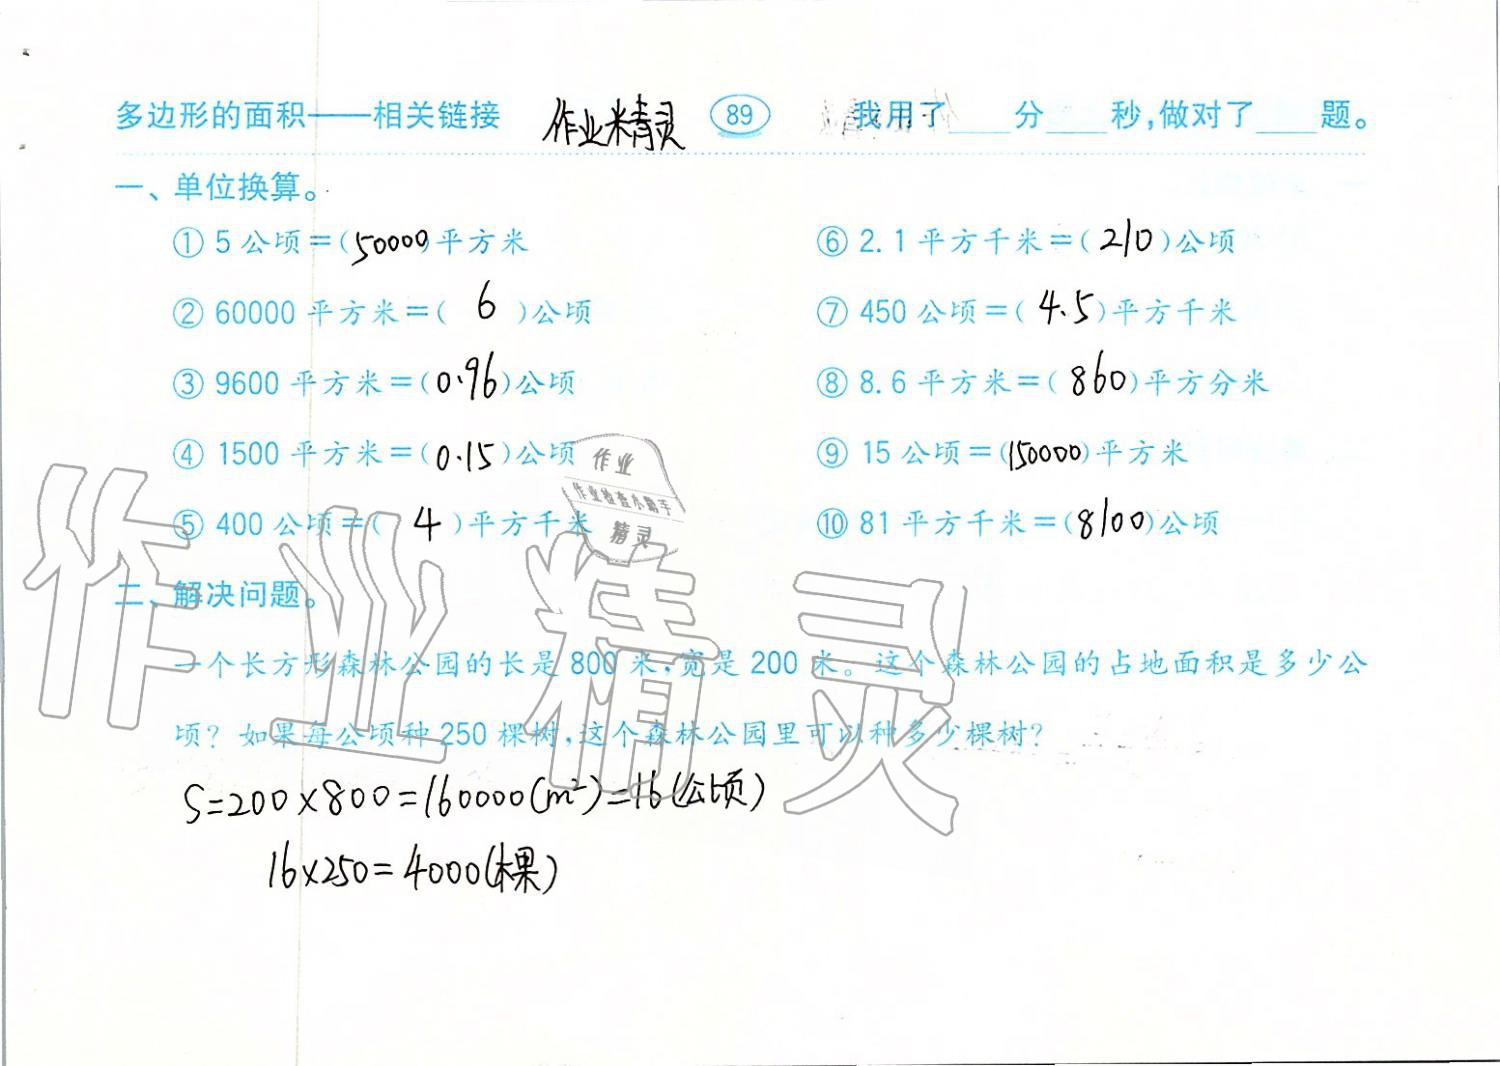 多边形的面积——相关链接 作业精灵 89 我用了____分____秒,做对了____题。
一、单位换算。
① 5公顷=(50000)平方米 ⑥ 2.1平方千米=(210)公顷
② 60000平方米=(6)公顷 ⑦ 450公顷=(4.5)平方千米
③ 9600平方米=(0.96)公顷 ⑧ 8.6平方米=(860)平方分米
④ 1500平方米=(0.15)公顷 ⑨ 15公顷=(150000)平方米
⑤ 400公顷=(4)平方千米 ⑩ 81平方千米=(8100)公顷
作业
作业检查小帮手
精灵
作业精灵
二、解决问题。
一个长方形森林公园的长是800米,宽是200米。这个森林公园的占地面积是多少公
顷?如果每公顷种250棵树,这个森林公园里可以种多少棵树?
S=200×800=160000(m²)=16(公顷)
16×250=4000(棵)